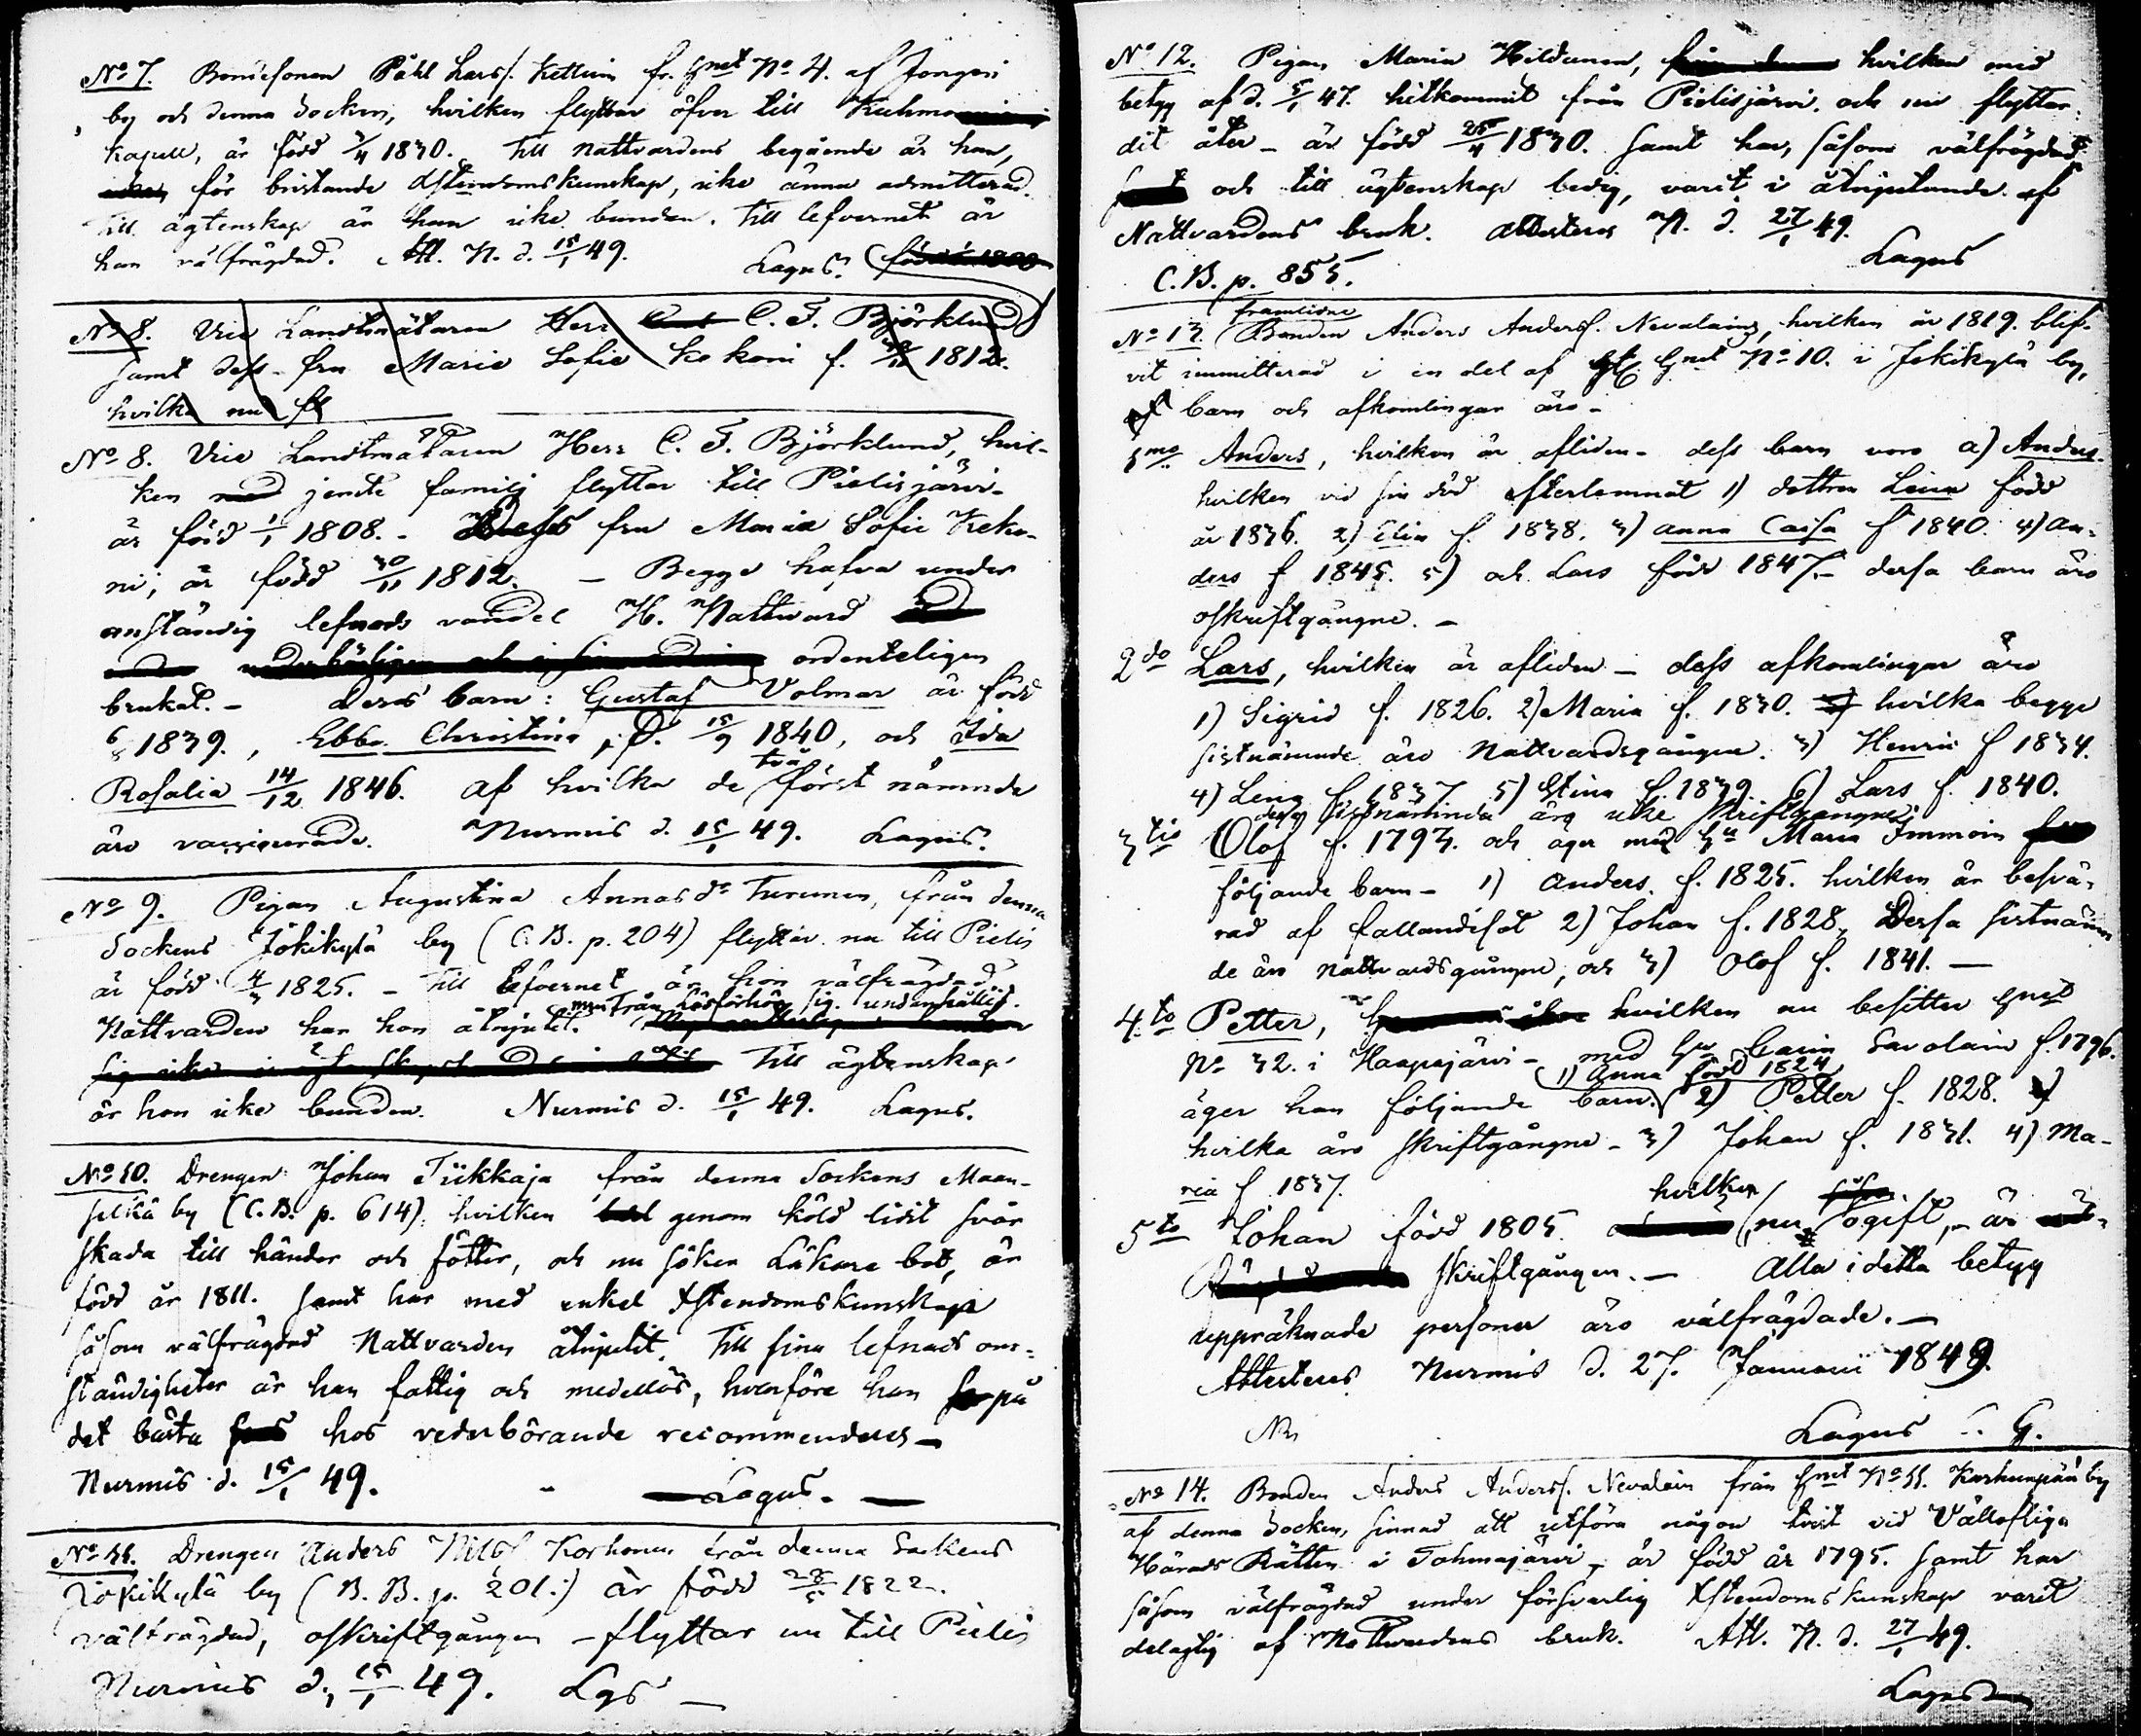 No 7. Bondesonen Påhl Larss. Kettuin fr. hmt No 4. af Jongeri
by och denna Socken, hvilken flyttar öfver till Kuhmo
Kapell, är född 3/4 1830. Till nattvardens begående är han,
för bristande Xstendomskunskap, icke ännu admitterad.
Till ägtenskap är han icke bunden. Till lefvernet är
han välfrägdad. Att. N. d. 15/1 49. Lagus.
No 8. Vice Landtmätaren Herr C. F. Björklund
samt dess fru Maria Sofia Kekoni f. 30/11 1812.
hvilka nu fl
No 8. Vice Landtmätaren Herr C. F. Björklund, hvil-
ken jemte familj flyttar till Pielisjärvi-
är född 1/1 1808. - Dess fru Maria Sofia Keko-
ni, är född 30/11 1812. - Begge hafva under
anständig lefnads vandel H. Nattvard
ordenteligen
brukat. - Deras barn: Gustaf Volmar är född
6/8 1839., Ebba Christina, d. 15/9 1840, och Ida
Rosalia 14/12 1846. af hvilka de två först nämnde
äro vaccinerade. Nurmis d. 15/1 49. Lagus.
No 9. Pigan Augustina Annasdr Turunen, från denna
Sockens Jokikylä by (C. B. p. 204) flyttar nu till Pielis
är född 4/3 1825. - Till lefvernet är hon välfrägdad.
Nattvarden har hon åtnjutit. men från Läsförhör sig undanhållit.
Till ägtenskap
är hon icke bunden. Nurmis d. 15/1 49. Lagus.
No 10. Drengen Johan Tiikkaja från denna Sockens Maan-
selkä by (C. B. p. 614). hvilken genom köld lidit svår
skada till händer och fötter, och nu söker Läkare bot, är
född år 1811. samt har med enkel Xstendomskunskap
såsom välfrägdad Nattvarden åtnjutit. Till sina lefnads om-
ständigheter är han fattig och medellös, hvarföre han på
det bästa hos vederbörande recommenderas -
Nurmis d. 15/1 49. - Lagus. -
No 11. Drengen Anders Nilss. Korhonen från denna Sockens
Jokikylä by (B. B. p. 201:) är född 28/5 1822.
välfrägdad, oskriftgången - flyttar nu till Pielis
Nurmis d. 15/1 49. Lgs -
No 12. Pigan Maria Hildunen, hvilken med
betyg af d. 5/1 47. hitkommit från Pielisjärvi. och nu flyttar
dit åter - är född 25/4 1830. samt har, såsom välfrägdad
och till ägtenskap ledig, varit i åtnjutande af
Nattvardens bruk. Attesteras N. d. 27/1 49.
Lagus
C. B. p. 855.
No 13. framlidne Bonden Anders Anderss. Nevalains, hvilken år 1819. blif-
vit immitterad i en del af hmt No 10. i Jokikylä by,
barn och afkomlingar äro -
1mo Anders, hvilken är afliden - dess barn voro a) Anders
hvilken vid sin död efterlemnat 1) dottren Lena född
år 1836. 2) Elin f. 1838. 3) Anna Caisa f 1840. 4) An-
ders f 1845. 5) och Lars född 1847. - dessa barn äro
oskriftgångne. -
2do Lars, hvilken är afliden - dess afkomlingar äro
1) Sigrid f. 1826. 2) Maria f. 1830. hvilka begge
sistnämnde äro Nattvardsgångna. 3) Henric f 1834.
4) Lena f. 1837 5) Stina f. 1839. 6) Lars f. 1840.
sistnämnda äro icke skriftgångne.
3tio Olof f. 1793. och äger med hu Maria Immoin
följande barn - 1) Anders. f. 1825. hvilken är besvä-
rad af fallandesot 2) Johan f. 1828. Dessa sistnämn
de äro nattvardsgångne, och 3) Olof f. 1841. -
4to Petter, hvilken nu besitter hmt
No 32. i Haapajärvi - med hu Carin Savolain f. 1796.
äger han följande barn. 1) Anna född 1824 2) Petter f. 1828.
hvilka äro skriftgångne - 3) Johan f. 1831. 4) Ma-
ria f 1837.
5to Johan född 1805. hvilken nu ogift, är
skriftgången. - Alla i detta betyg
uppräknade personer äro välfrägdade. -
Attesteras Nurmis d. 27. Januarii 1849.
Lagus
No 14. Bonden Anders Anderss. Nevalain från hmt No 11. Karhunpää by
af denna Socken, sinnad att utföra någon tvist vid Vällofliga
Härads Rätten i Tohmajärvi, är född år 1795. samt har
såsom välfrägdad under försvarlig Xstendomskunskap varit
delagtig af Nattvardens bruk. Att. N. d. 27/1 49.
Lagus